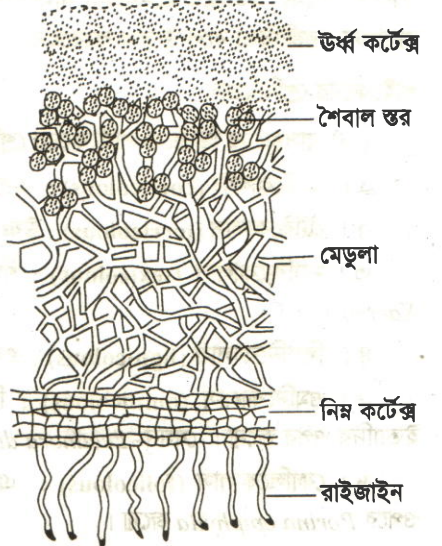 ঊর্ধ্ব কর্টেক্স
শৈবাল স্তর
মেডুলা
নিম্ন কর্টেক্স
রাইজাইন